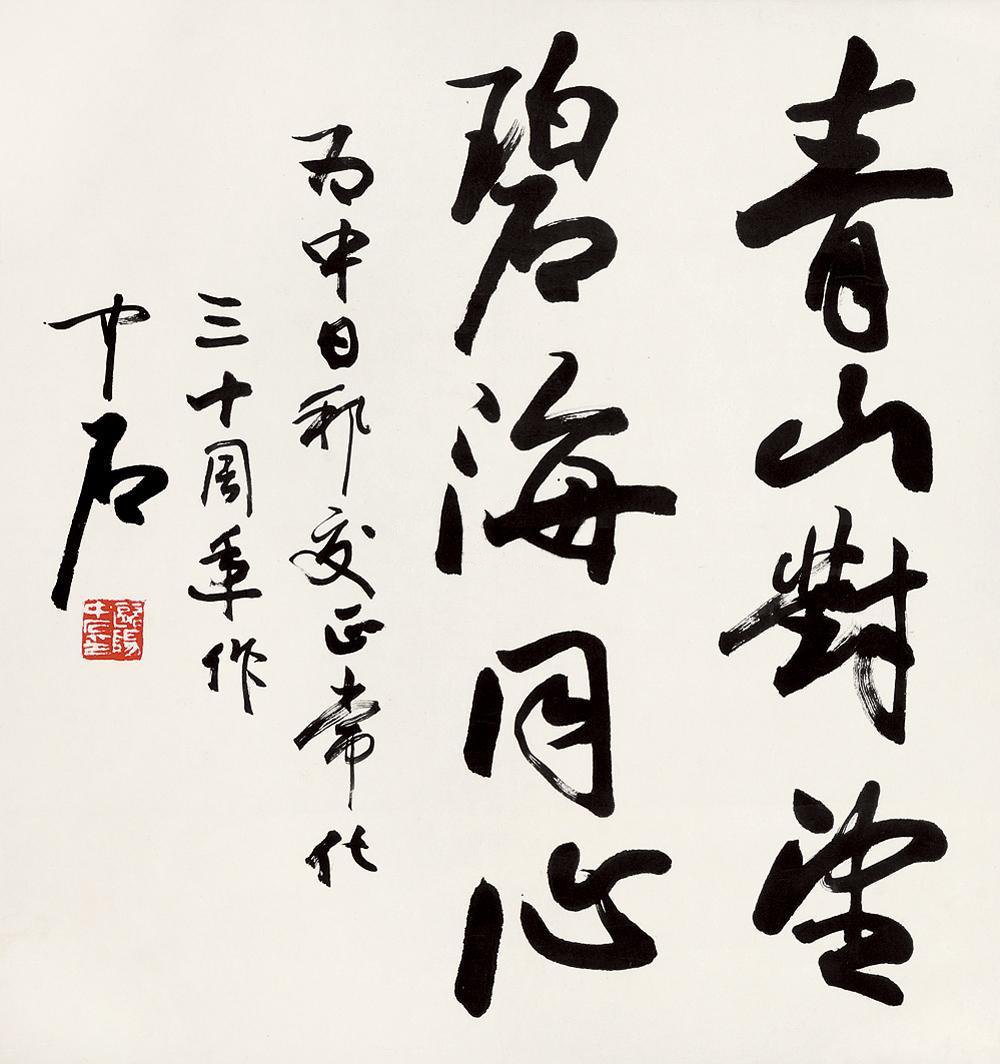 青山對望
碧海同心
为中日邦交正常化
三十周年作
中石
歐陽中石